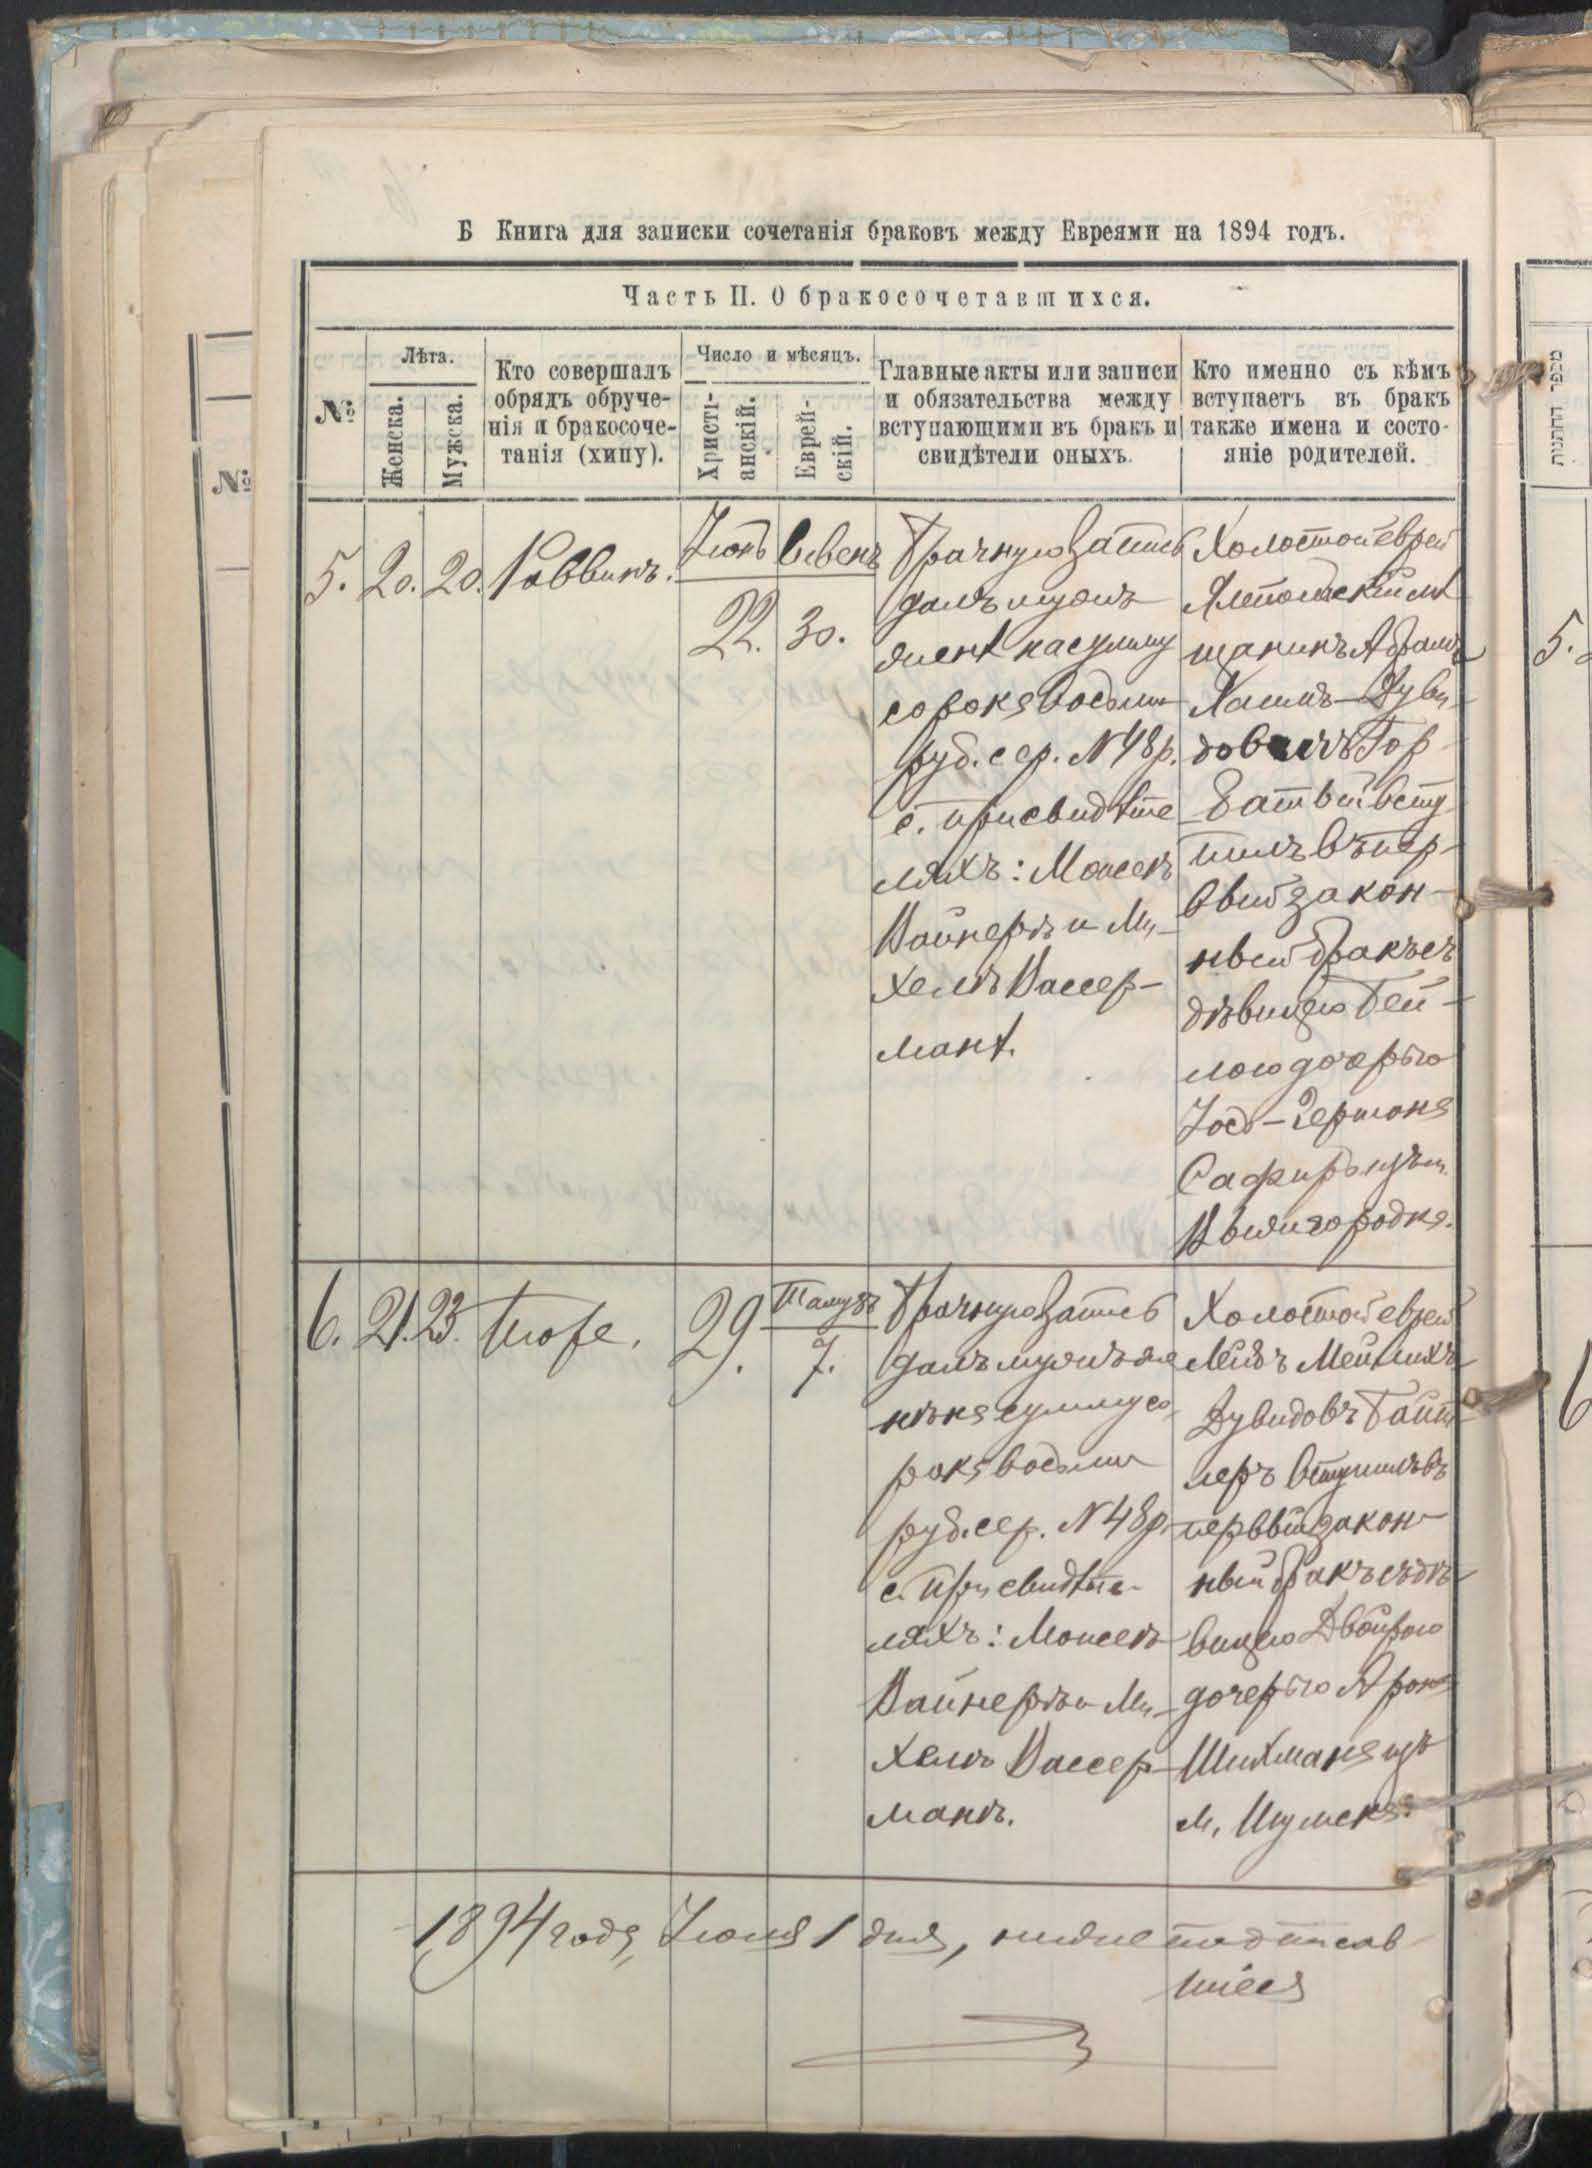 Б Книга для записки сочетанія браковъ между Евреями на 1894 годъ.
Часть II. О бракосочетавшихся.
№
Лѣта.
Женска.
Мужска.
Кто совершалъ
обрядъ обруче-
нія и бракосоче-
танія (хипу).
Число и мѣсяцъ.
Христі-
анскій.
Еврей-
скій.
Главные акты или записи
и обязательства между
вступающими въ бракъ и
свидѣтели оныхъ.
Кто именно съ кѣмъ
вступаетъ въ бракъ
также имена и состо-
яніе родителей.
5. 20. 20. Раввинъ.
Іюнь
22.
Сивенъ
30.
Брачную запись
далъ мужъ
женѣ на сумму
сорокъ восемь
руб. сер. № 48 р.
с. при свидѣте
ляхъ: Мошекъ
Вайнеръ и Ми-
хель Вассер-
манѣ.
Холостой еврей
мѣ
щанинъ Абрамъ
Хаимъ-Дуви-
довичъ Гор-
батый всту
пилъ въ пер-
вый закон-
ный бракъ съ
дѣвицею Бей-
лою дочерью
Іось-Гершона
Сафиръ изъ м.
Вышгородка.
6. 21. 23. Тоже.
29.
Тамузъ
7.
Брачную запись
далъ мужъ же
нѣ на сумму со-
рокъ восемь
руб. сер. № 48 р.
с. при свидѣте-
ляхъ: Мошекъ
Вайнеръ и Ми-
хель Вассер-
манъ.
Холостой еврей
Лейбъ Мейлихъ
Дувидовъ
леръ вступилъ въ
первый закон-
ный бракъ съ дѣ-
вицею Двойрою
дочерью Арона
Шихмана изъ
м. Шумска.
1894 года, Іюля 1 дня, нижеподписав
шіеся
№
מספר החתנות
5.
6